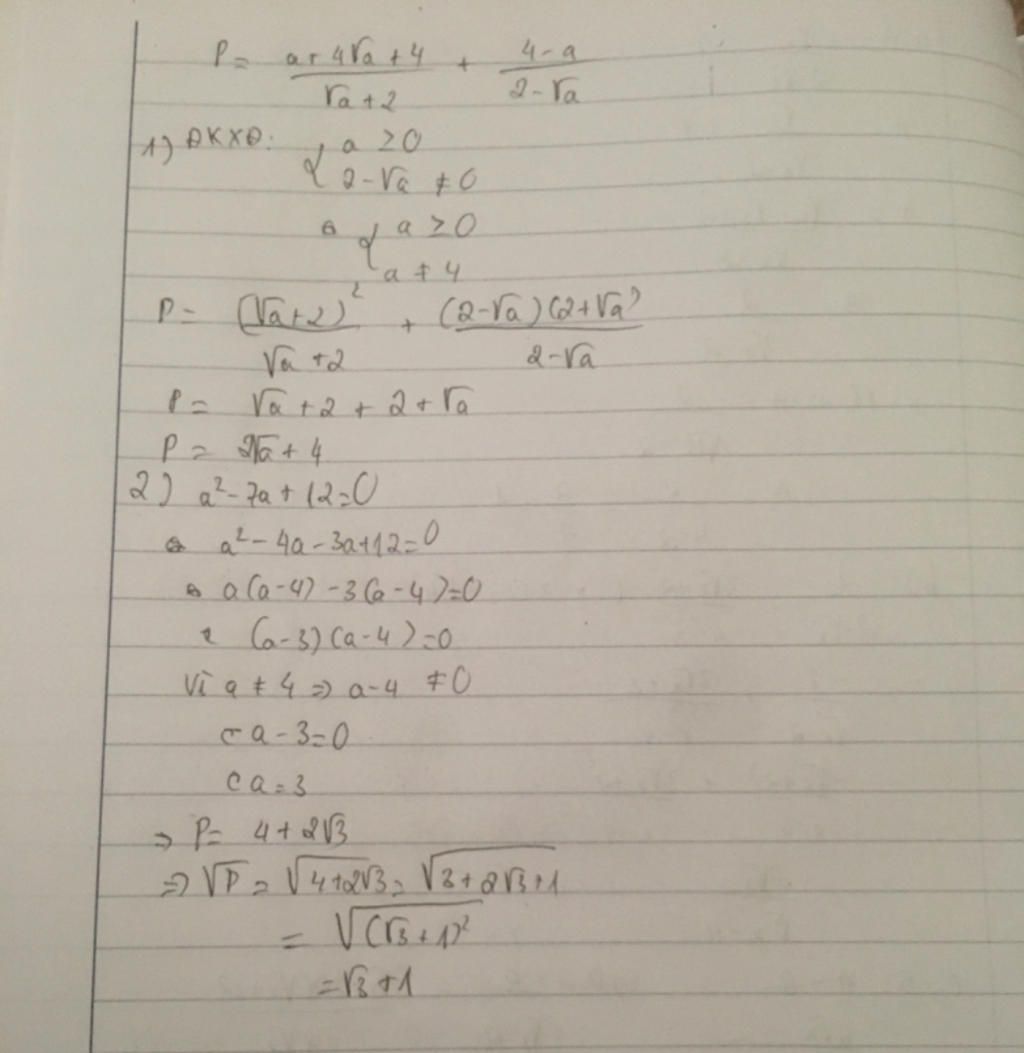 P = (a + 4√a + 4)/(√a + 2) + (4 - a)/(2 - √a)
1) ĐKXĐ: { a ≥ 0
2 - √a ≠ 0
⇔ { a ≥ 0
a ≠ 4
P = (√a + 2)²/(√a + 2) + (2 - √a)(2 + √a)/(2 - √a)
P = √a + 2 + 2 + √a
P = 2√a + 4
2) a² - 7a + 12 = 0
⇔ a² - 4a - 3a + 12 = 0
⇔ a(a - 4) - 3(a - 4) = 0
⇔ (a - 3)(a - 4) = 0
Vì a ≠ 4 ⇒ a - 4 ≠ 0
⇔ a - 3 = 0
⇔ a = 3
⇒ P = 4 + 2√3
⇒ √P = √(4 + 2√3) = √(3 + 2√3 + 1)
= √((√3 + 1)²)
= √3 + 1